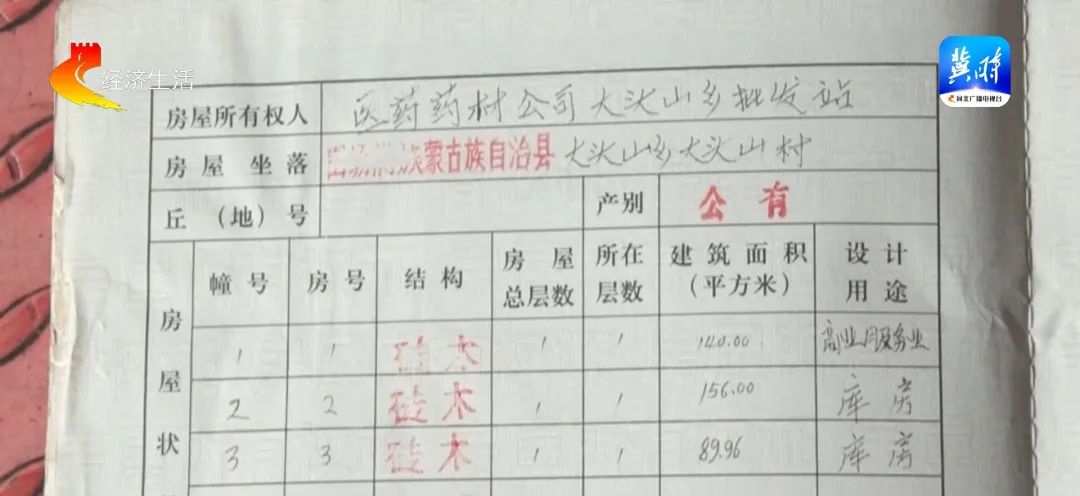 经济生活
冀时
河北广播电视台
房屋所有权人 医药药材公司大头山乡批发站
房屋坐落 蒙古族自治县 大头山乡大头山村
丘(地)号 产别 公有
房屋状
幢号 房号 结构 房屋总层数 所在层数 建筑面积(平方米) 设计用途
1 1 砖木 1 1 140.00 商业服务业
2 2 砖木 1 1 156.00 库房
3 3 砖木 1 1 89.96 库房